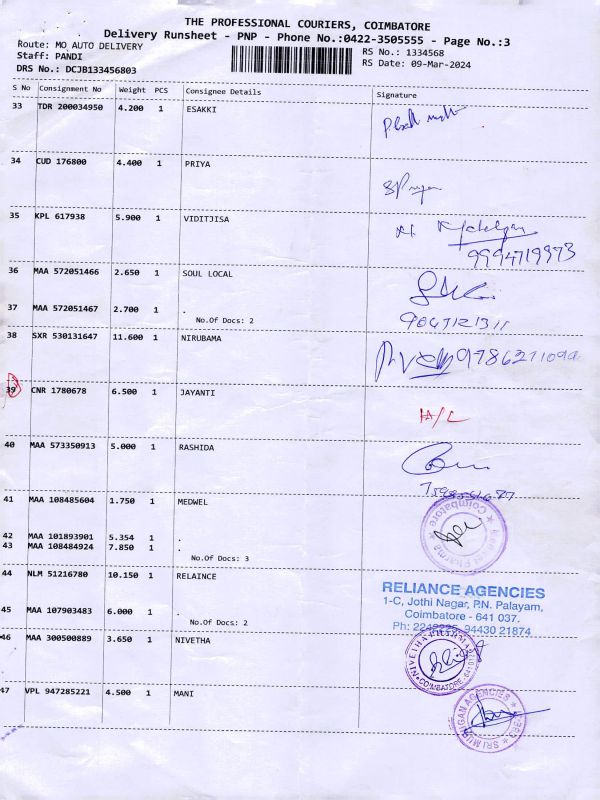 THE PROFESSIONAL COURIERS, COIMBATORE
Delivery Runsheet - PNP - Phone No.:0422-3505555 - Page No.:3
Route: MO AUTO DELIVERY
RS No.: 1334568
Staff: PANDI
RS Date: 09-Mar-2024
DRS No.: DCJB133456803
S No Consignment No Weight PCS Consignee Details Signature
33 TDR 200034950 4.200 1 ESAKKI
34 CUD 176800 4.400 1 PRIYA
35 KPL 617938 5.900 1 VIDITJISA
9994719973
36 MAA 572051466 2.650 1 SOUL LOCAL
37 MAA 572051467 2.700 1 .
No.Of Docs: 2
9047121311
38 SXR 530131647 11.600 1 NIRUBAMA
39 CNR 1780678 6.500 1 JAYANTI
40 MAA 573350913 5.000 1 RASHIDA
41 MAA 108485604 1.750 1 MEDWEL
Coimbatore
42 MAA 101893901 5.354 1 .
43 MAA 108484924 7.850 1 .
No.Of Docs: 3
44 NLM 51216780 10.150 1 RELAINCE
RELIANCE AGENCIES
1-C, Jothi Nagar, P.N. Palayam,
Coimbatore - 641 037.
Ph: 94430 21874
45 MAA 107903483 6.000 1 .
No.Of Docs: 2
46 MAA 300500889 3.650 1 NIVETHA
NIVETHA PHARMA
COIMBATORE
47 VPL 947285221 4.500 1 MANI
SRI MURUGAN AGENCIES